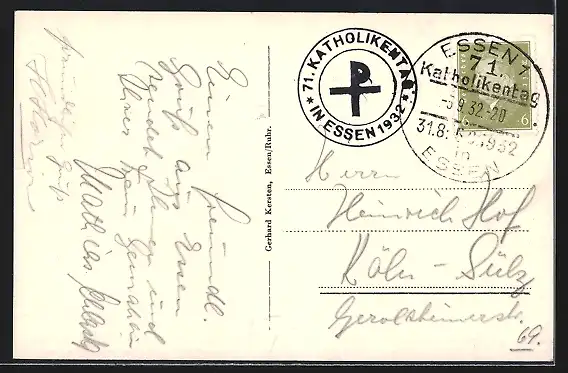 Einen freundl.
Gruß aus Essen
sendet Ihnen und
Ihrer
Mathias
Gerhard Kersten, Essen/Ruhr.
71. KATHOLIKENTAG
* IN ESSEN 1932 *
ESSEN 7
71.
Katholikentag
-5.9.32.-20
31.8
1932
in
ESSEN
6
Herrn
Heinrich Hof
Köln-Sülz
Gerolsteinerstr.
69.